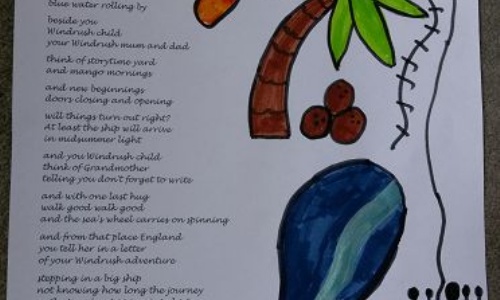 blue water rolling by
beside you
Windrush child
your Windrush mum and dad
think of storytime yard
and mango mornings
and new beginnings
doors closing and opening
will things turn out right?
At least the ship will arrive
in midsummer light
and you Windrush child
think of Grandmother
telling you don't forget to write
and with one last hug
walk good walk good
and the sea's wheel carries on spinning
and from that place England
you tell her in a letter
of your Windrush adventure
stepping in a big ship
not knowing how long the journey